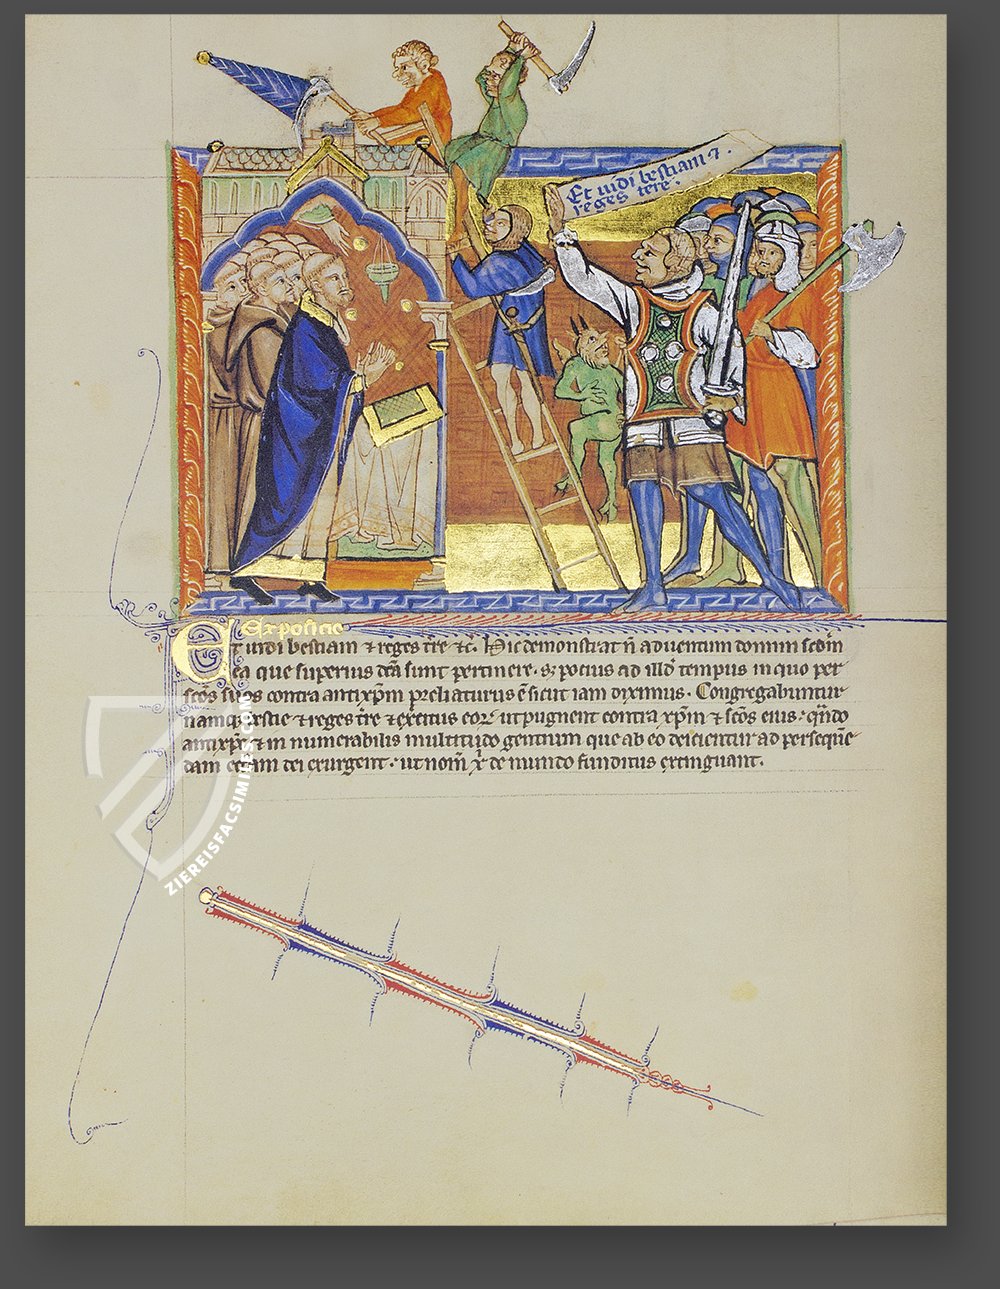 Et uidi bestiam ⁊.
reges terē.
Expositio
Et uidi bestiam ⁊ reges tr̄e ⁊c̄. Hic demonstrat n̄ aduentum domini sedm̄
ea que superius dc̄a sunt pertinere. s; pocius ad illd̄ tempus in quo per
sc̄os suos contra antixp̄m preliaturus ē sicut iam diximus. Congregabuntur
namq; bestie ⁊ reges tr̄e ⁊ exercitus eoꝝ ut pugnent contra xp̄m ⁊ sc̄os eius. qn̄do
antixp̄r ⁊ in numerabilis multitudo gentium que ab eo deicientur ad persequē
dam eccl̄am dei exurgent. ut nom̄ xp̄i de mundo funditus extinguant.
ZIEREISFACSIMILES.COM